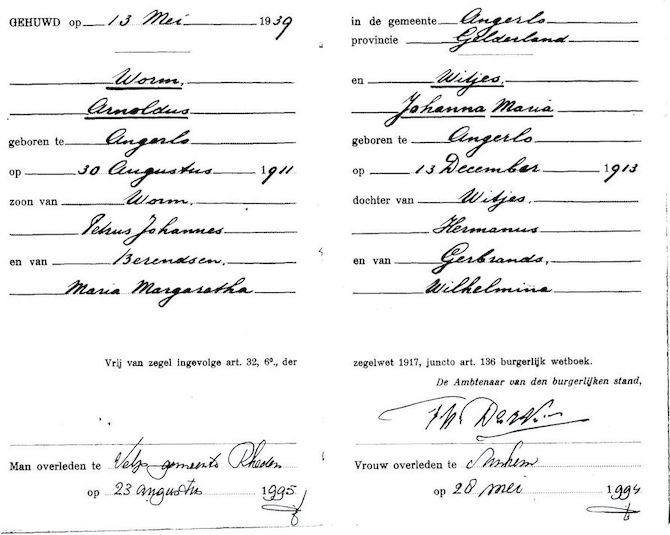 GEHUWD op 13 Mei 1939
Worm,
Arnoldus
geboren te Angerlo
op 30 Augustus 1911
zoon van Worm,
Petrus Johannes
en van Berendsen,
Maria Margaretha
Vrij van zegel ingevolge art. 32, 6°., der
Man overleden te Velp gemeente Rheden
op 23 augustus 1995
in de gemeente Angerlo
provincie Gelderland
en Witjes,
Johanna Maria
geboren te Angerlo
op 13 December 1913
dochter van Witjes,
Hermanus
en van Gerbrands,
Wilhelmina
zegelwet 1917, juncto art. 136 burgerlijk wetboek.
De Ambtenaar van den burgerlijken stand,
Vrouw overleden te Arnhem
op 28 mei 1994